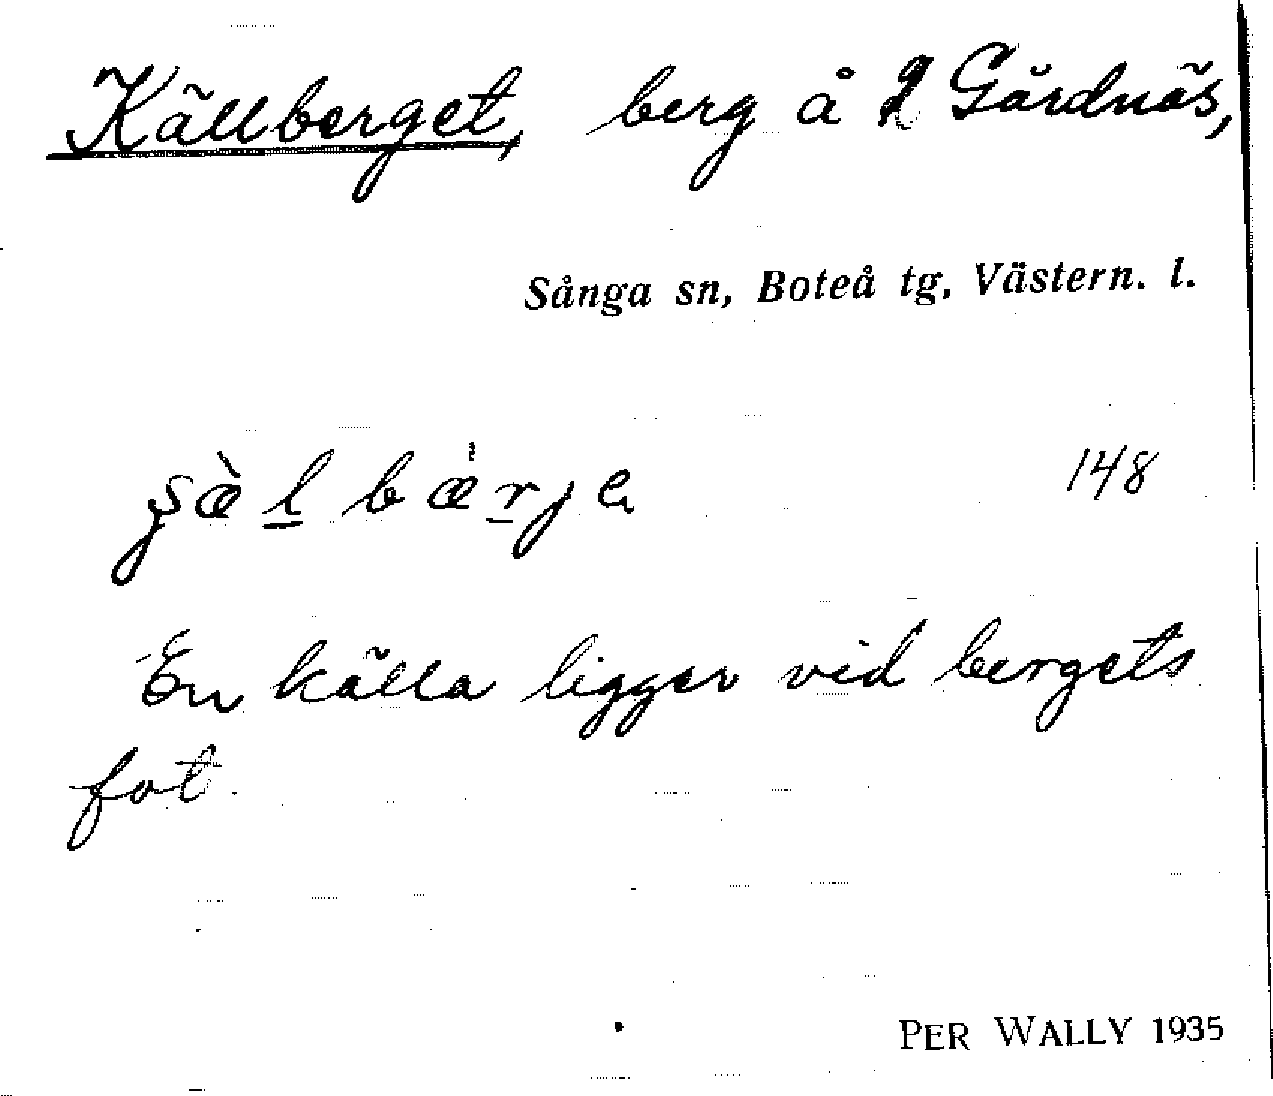 Källberget, berg å Gårdnäs,
Sånga sn, Boteå tg, Västern. l.
148
En källa ligger vid bergets
fot.
PER WALLY 1935